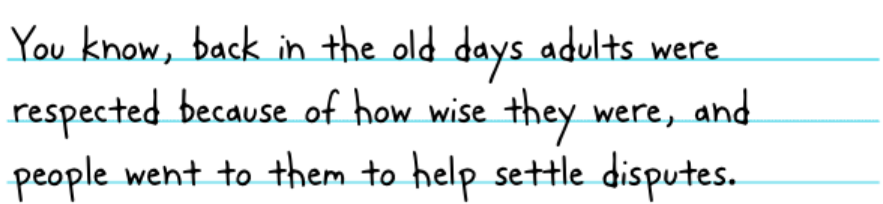 You know, back in the old days adults were
respected because of how wise they were, and
people went to them to help settle disputes.